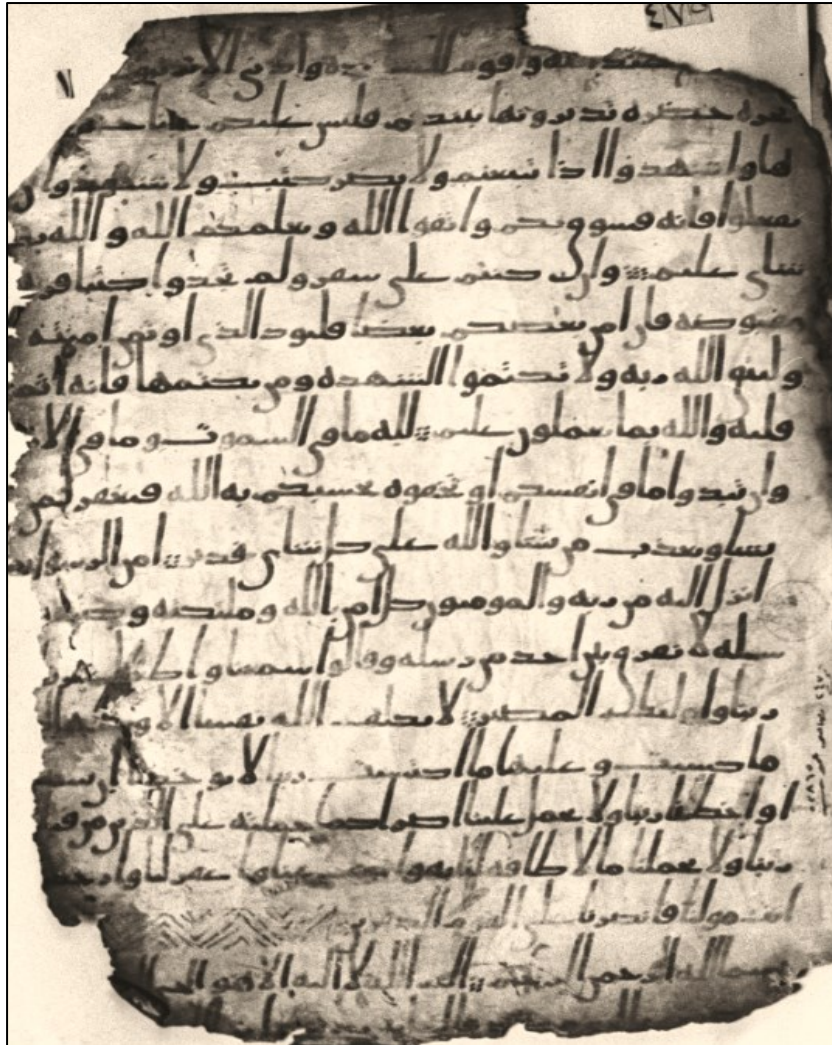 واقوم للشهدة وادنى الا ترتبوا
تجرة حضرة تديرونها بينكم فليس عليكم جناح
ها واشهدوا اذا تبيعتم ولا يضر كتب ولا شهيد وان
تفعلوا فانه فسوق بكم واتقوا الله ويعلمكم الله والله بكل
شاي عليم وان كنتم على سفر ولم تجدوا كتبا فرهن
مقبوضة فان امن بعضكم بعضا فليود الذي اوتمن امنته
وليتق الله ربه ولا تكتموا الشهدة ومن يكتمها فانه اثم
قلبه والله بما تعملون عليم لله ما في السموت وما في الا
وان تبدوا ما في انفسكم او تخفوه يحسبكم به الله فيغفر لمن
يشا ويعذب من يشا والله على كل شاي قدير امن الرسول بما
انزل اليه من ربه والمومنون كل امن بالله وملئكته وكتبه
سله لا نفرق بين احد من رسله وقالوا سمعنا واطعنا
ربنا واليك المصير لا يكلف الله نفسا الا وسعها لها
ما كسبت وعليها ما اكتسبت ربنا لا تواخذنا ان نسينا
او اخطانا ربنا ولا تحمل علينا اصرا كما حملته على الذين من قبلنا
ربنا ولا تحملنا ما لا طاقة لنا به واعف عنا واغفر لنا وارحمنا
انت مولنا فانصرنا على القوم الكفرين
بسم الله الرحمن الرحيم الم الله لا اله الا هو الحي